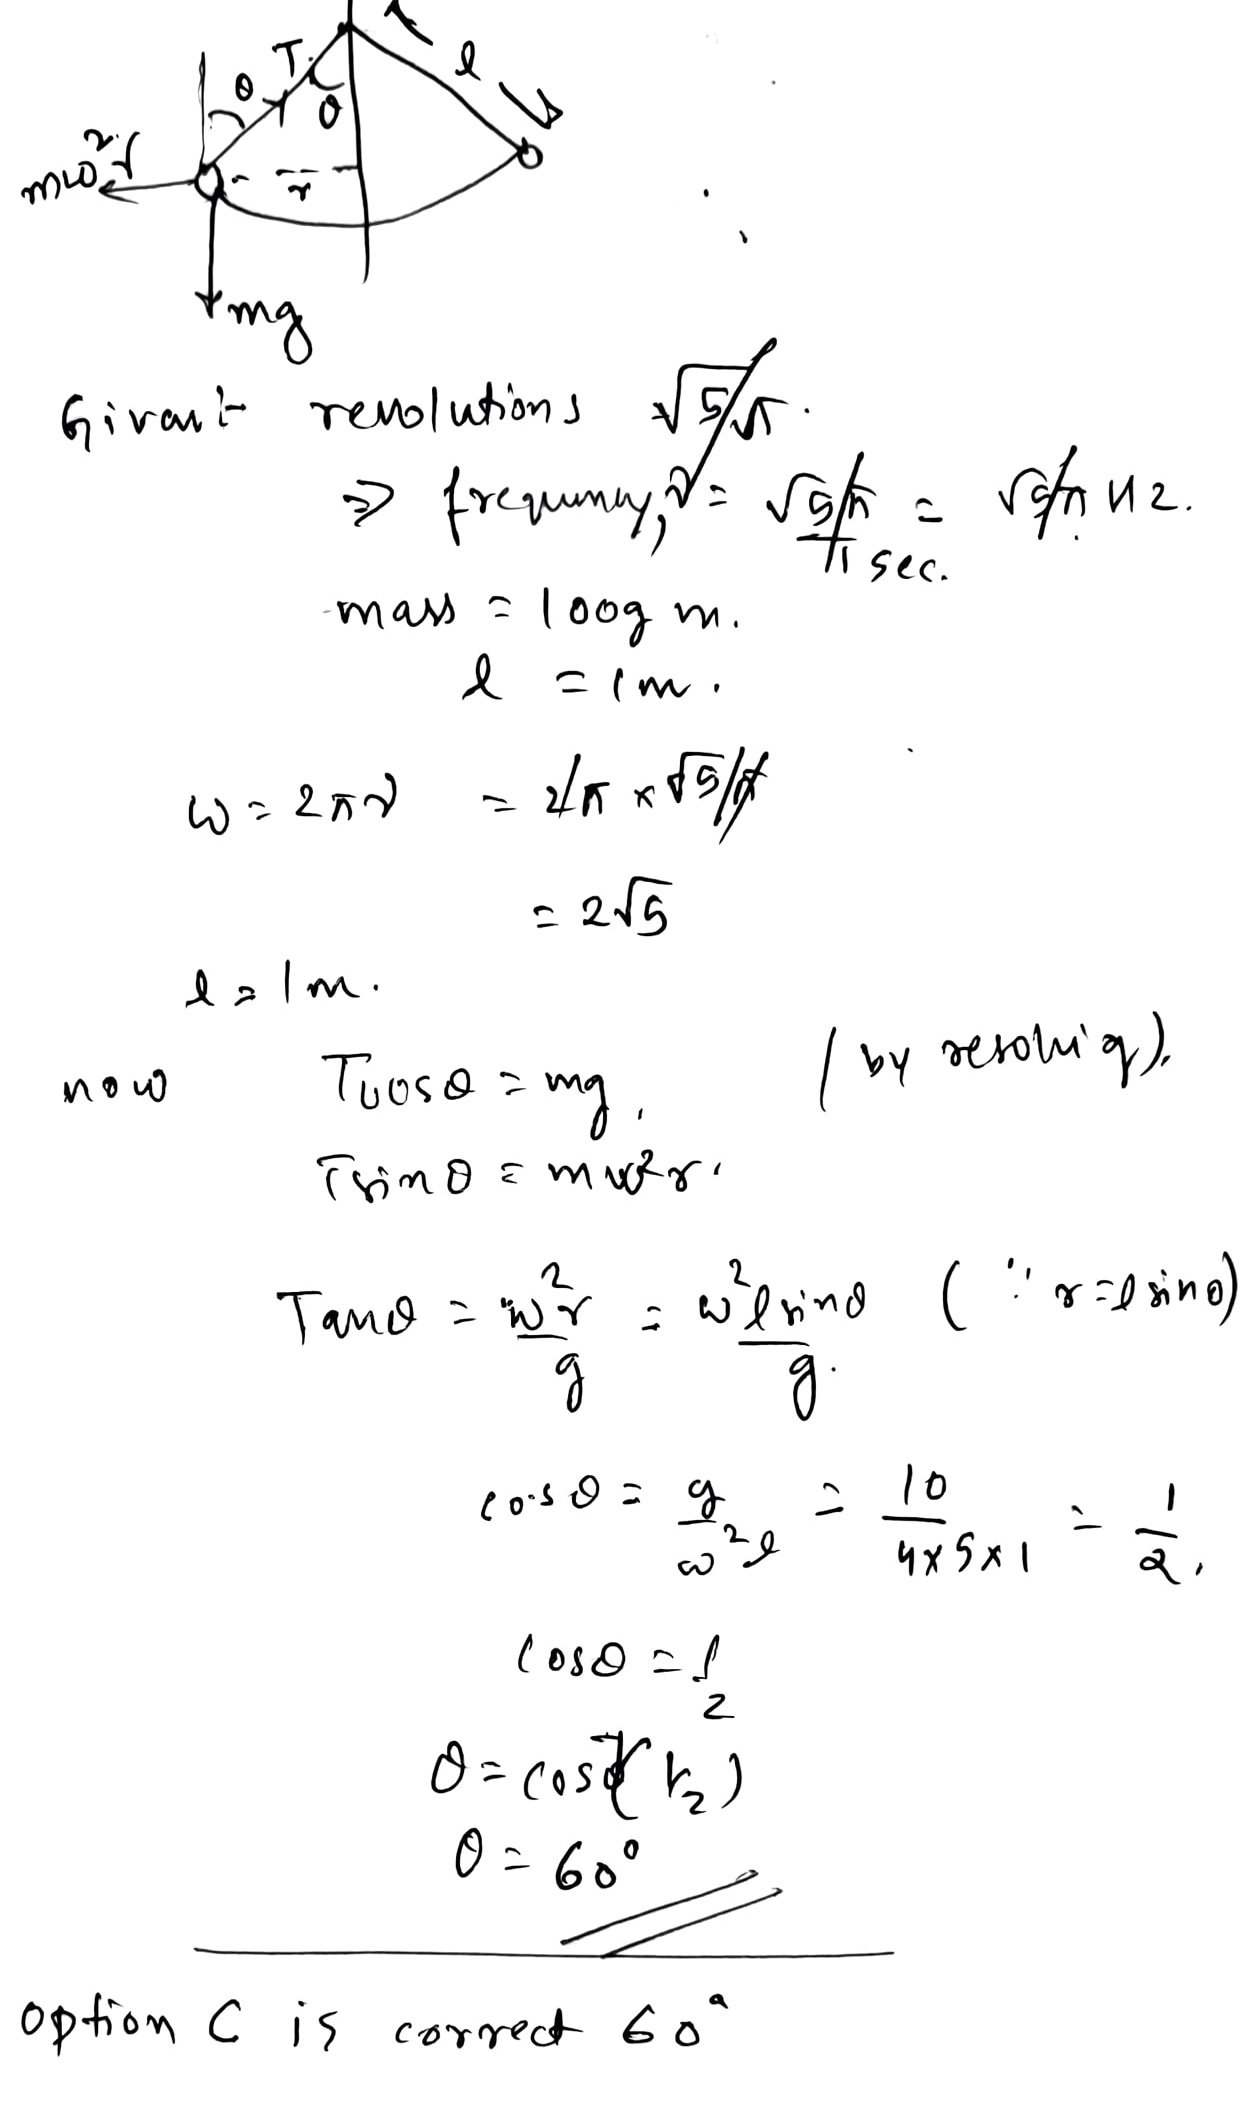 l
T
θ
θ
mω²r
r
mg
Givent revolutions √5/π.
⇒ frequency, ν = √5/π / 1 sec. = √5/π Hz.
mass = 100g m.
l = 1m.
ω = 2πν = 2π × √5/π
= 2√5
l = 1m.
now Tcosθ = mg, (by resolvig).
Tsinθ = mω²r.
Tanθ = ω²r/g = ω²lsinθ/g. (∵ r=lsinθ)
cosθ = g/ω²l = 10/4×5×1 = 1/2,
cosθ = 1/2
θ = cos⁻¹(1/2)
θ = 60°
option C is correct 60°